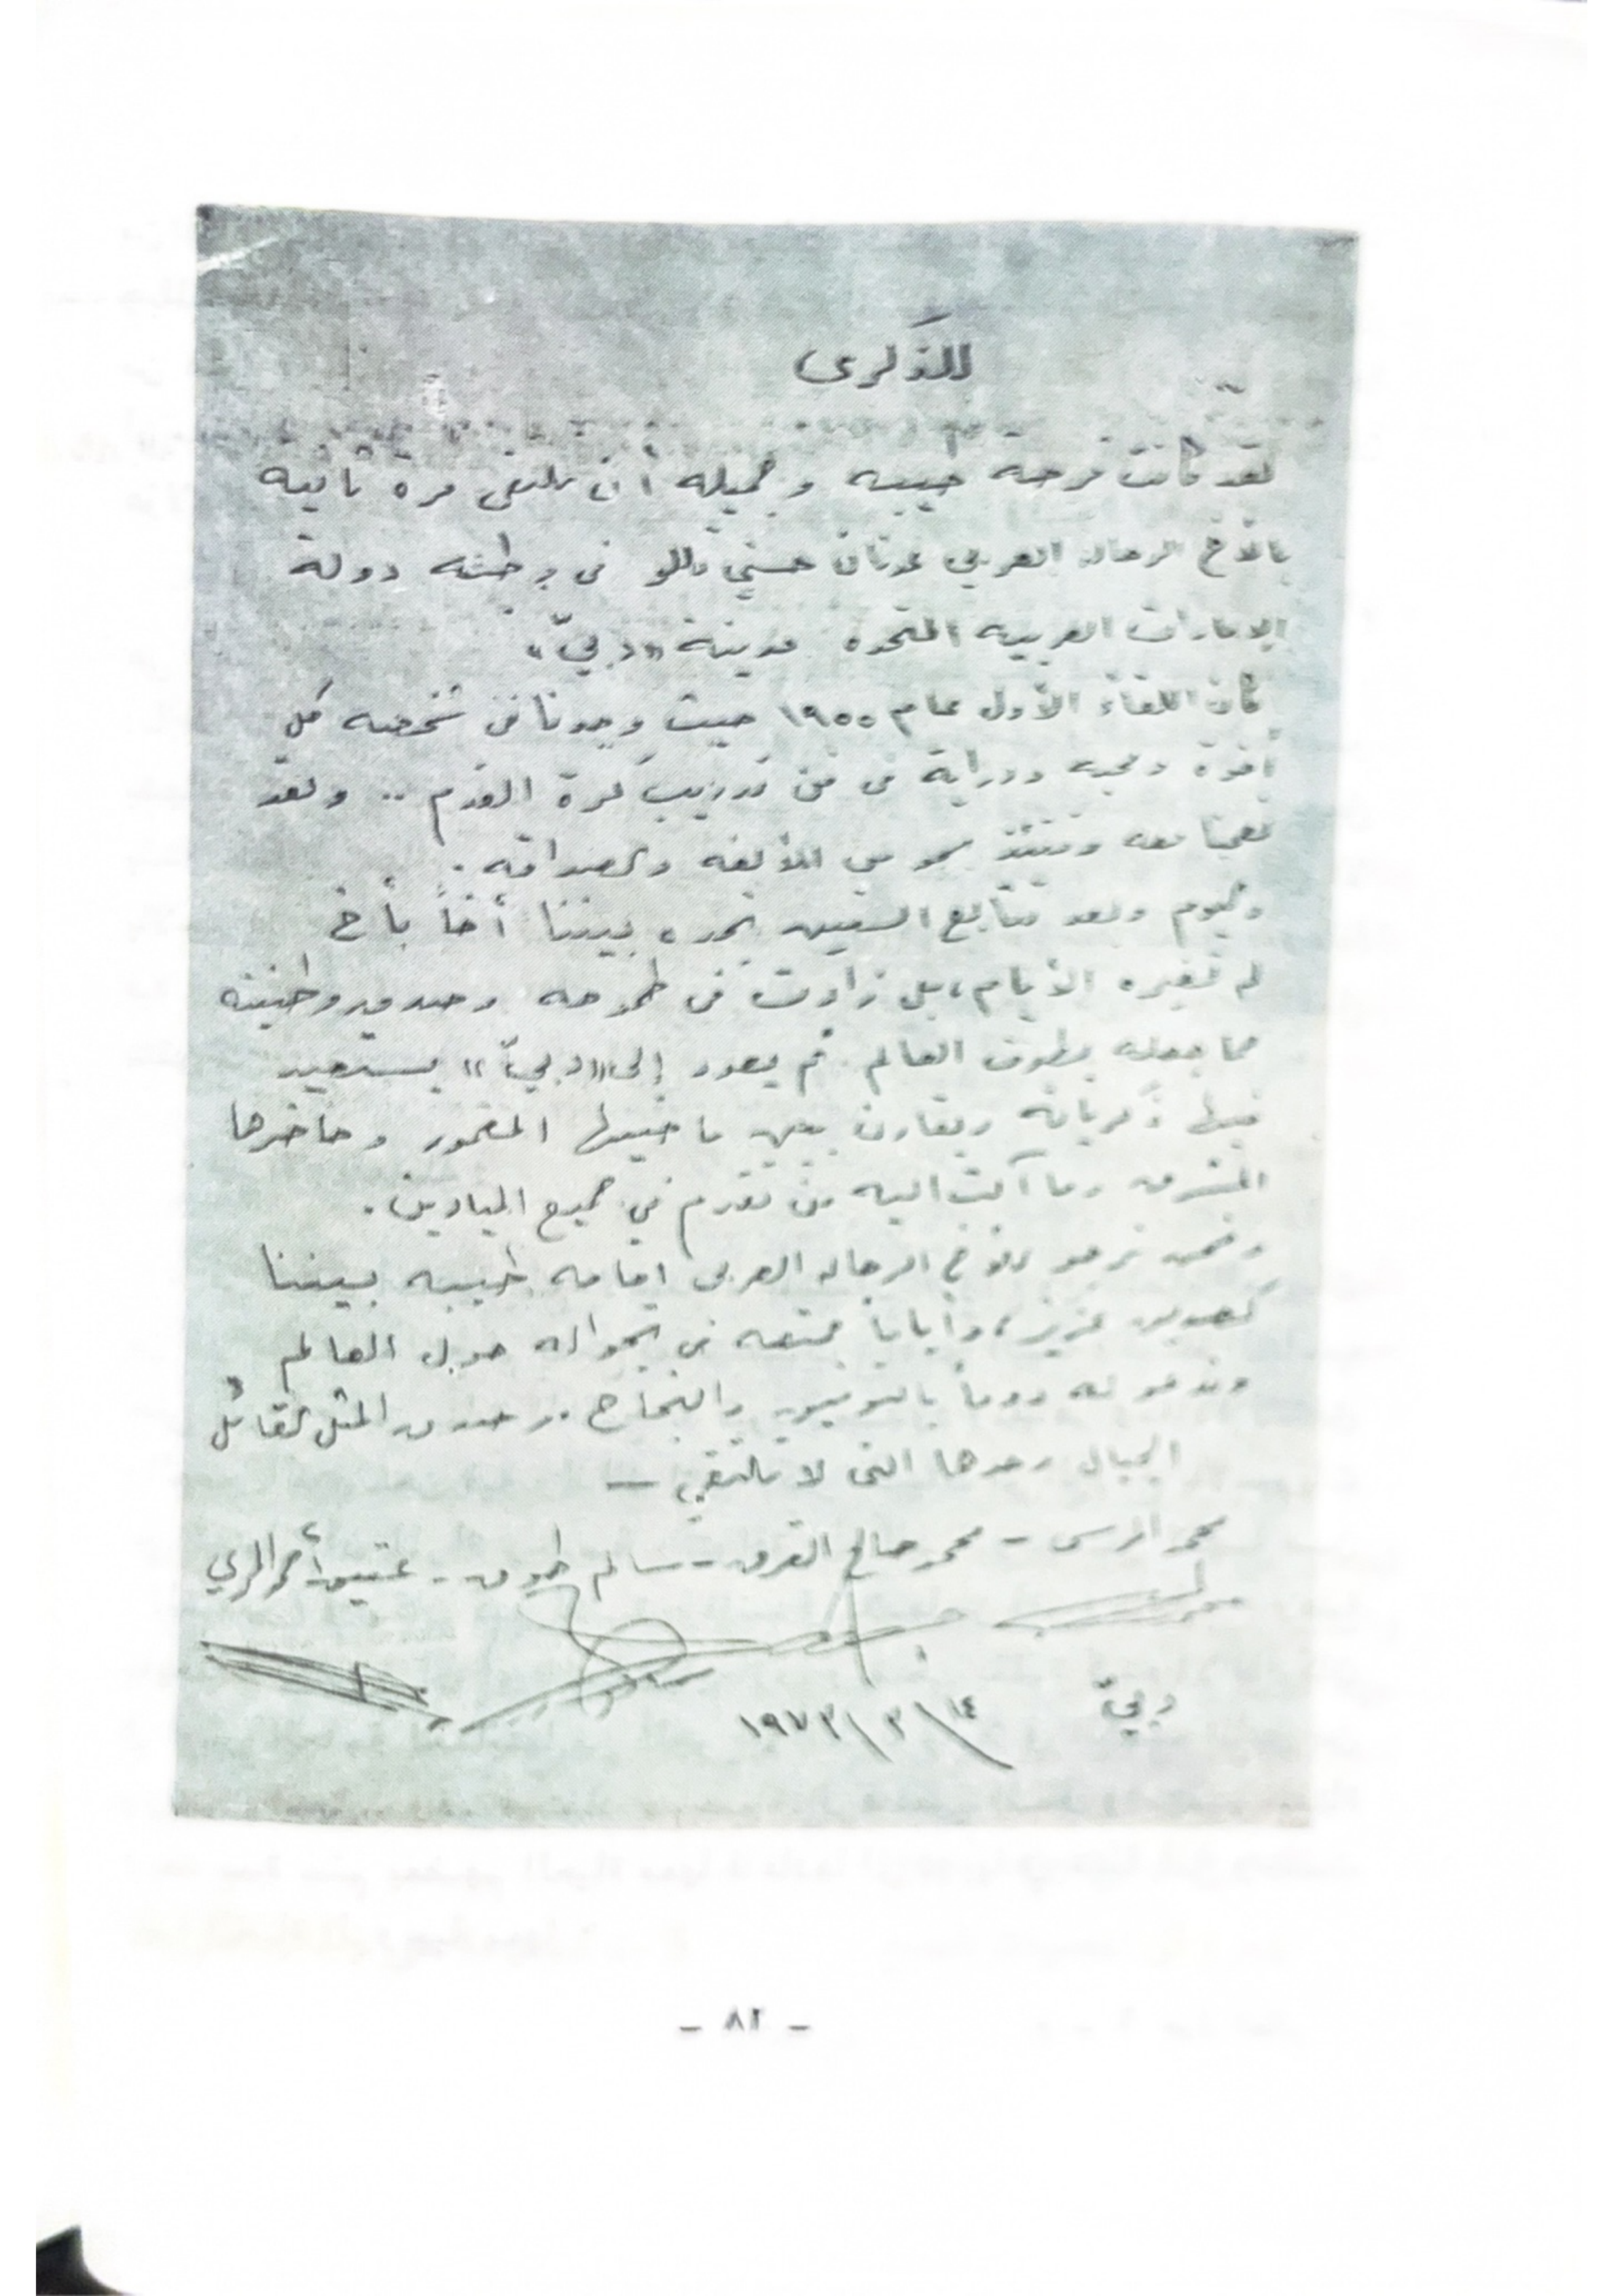 للذكرى
لقد كانت فرحه طيبه وجميله أن نلتقى مرة ثانية
بالأخ الرحاله العربي عدنان حسني تللو فى وطنه دولة
الامارات العربيه المتحده مدينة «دبيّ»
كان اللقاء الأول عام ١٩٥٥ حيث وجدنا فى شخصه كل
أخوة ومحبه ودراية فى فن تدريب كرة القدم .. ولقد
معه وقتئذ بجو من الألفه والصداقه .
واليوم وبعد تتابع السنين نجده بيننا أخاً بأخ
لم تغيره الأيام، بل زادت فى طموحه وصدق وطنيته
مما جعله يطوف العالم ثم يعود إلى «دبيّ» يستعيد
فيها ذكرياته ويقارن بين ماضيها المغمور وحاضرها
المشرق وما آلت اليه من تقدم في جميع الميادين .
ونحن نرجو للأخ الرحاله العربى اقامه طيبه بيننا
كصديق عزيز، وأياباً ممتعه فى تجواله حول العالم
وندعو له دوماً بالتوفيق والنجاح . وصدق المثل القائل
الجبال وحدها التى لا تلتقي —
محمد المرسى - محمد صالح القرق - سالم طبوق - عتيق أحمد المري
دبيّ ١٤/٣/١٩٧٣
- ٨٢ -